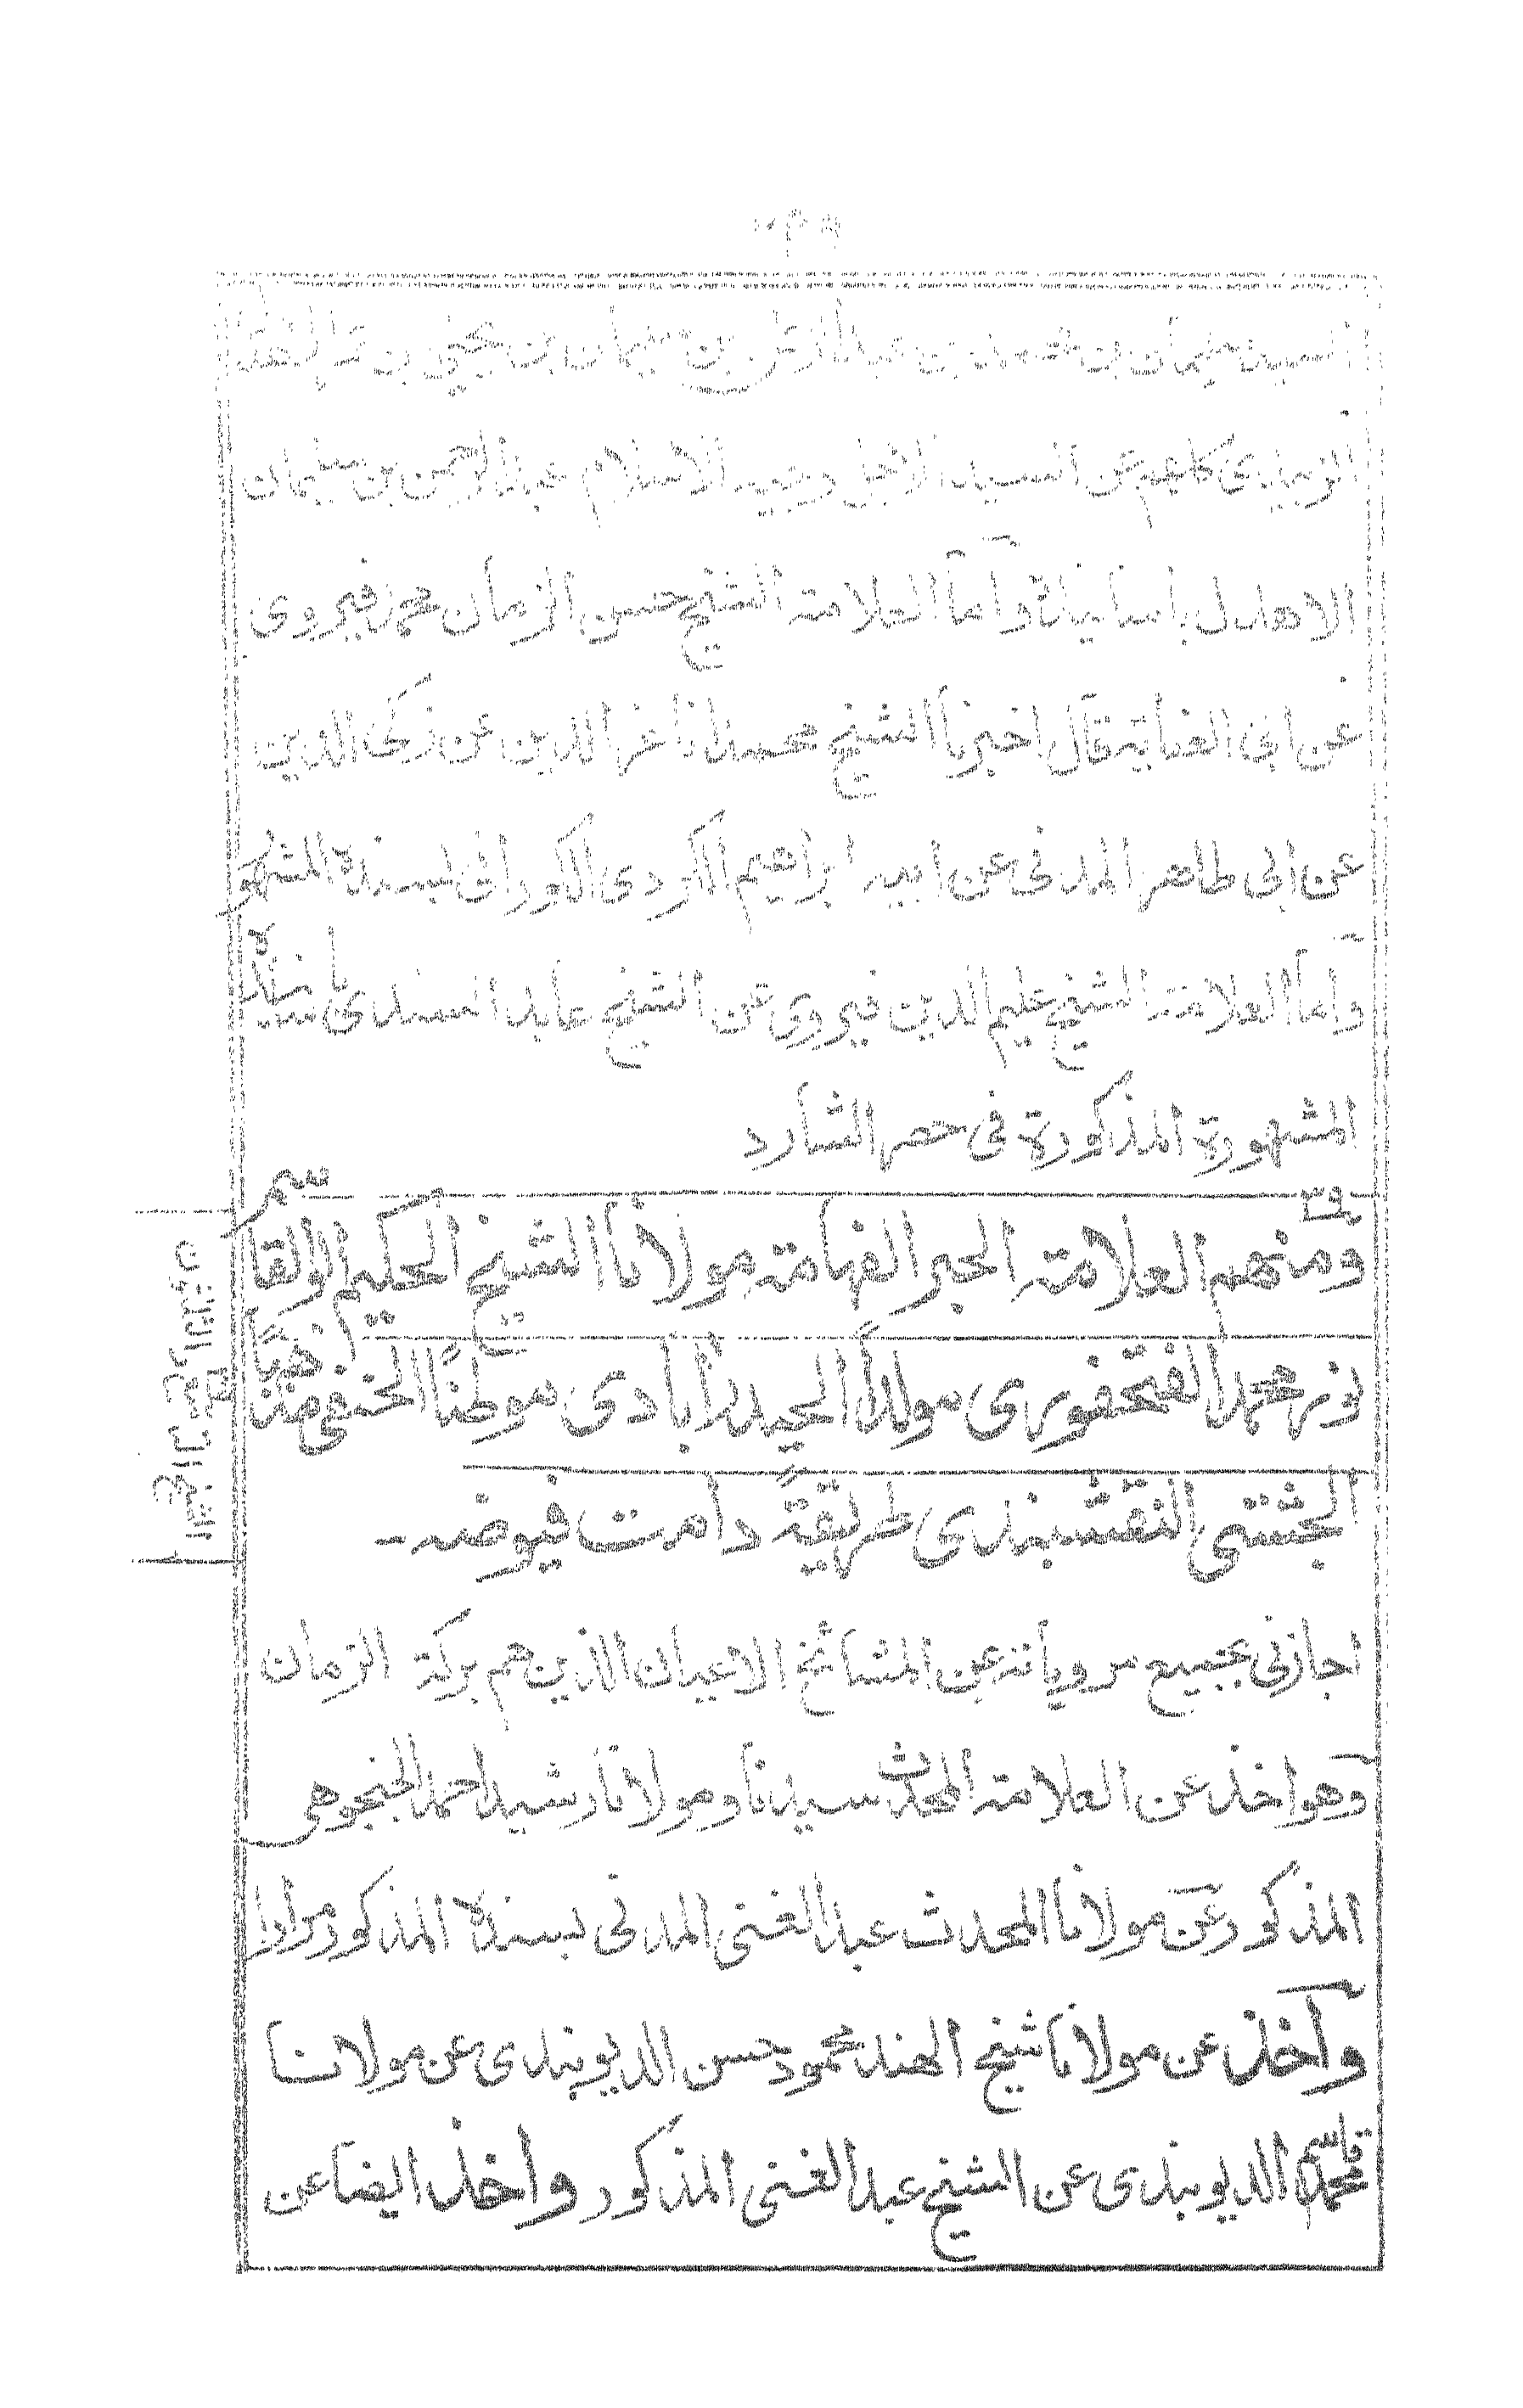 السيد سليمان بن محمد بن عبد الرحمن بن سليمان بن يحيى بن
الزبيدى كلهم عن السيد الاجل وجيه الاسلام عبد الرحمن بن سليمان
الاهدل باسانيده وأما العلامة الشيخ حسن الزمان محمد فيروى
عن ابى العناية قال اخبرنا الشيخ محمد انا عز الدين عن زكى الدين
عن ابى طاهر المدنى عن ابيه ابراهيم الكردى الكورانى بسنده المشهور
وأما العلامة الشيخ عليم الدين فيروى عن الشيخ عابد السندى باسناده
المشهورة المذكورة فى حصر الشارد
٣٩
ومنهم العلامة الحبر الفهامة مولانا الشيخ الحكيم ابو القاسم
نور محمد الفتحفورى مولداً الحيدرآبادى موطنًا الحنفى مذهبًا
الجشتى النقشبندى طريقةً دامت فيوضه -
اجازنى بجميع مروياته عن المشائخ الاعيان الذين هم بركة الزمان
وهو اخذ عن العلامة المحدث سيدنا ومولانا رشيد احمد الجنجوهى
المذكور عن مولانا المحدث عبد الغنى المدنى بسنده المذكور مرارا
وأخذ عن مولانا شيخ الهند محمود حسن الديوبندى عن مولانا
محمد قاسم الديوبندى عن الشيخ عبد الغنى المذكور واخذ ايضا عن